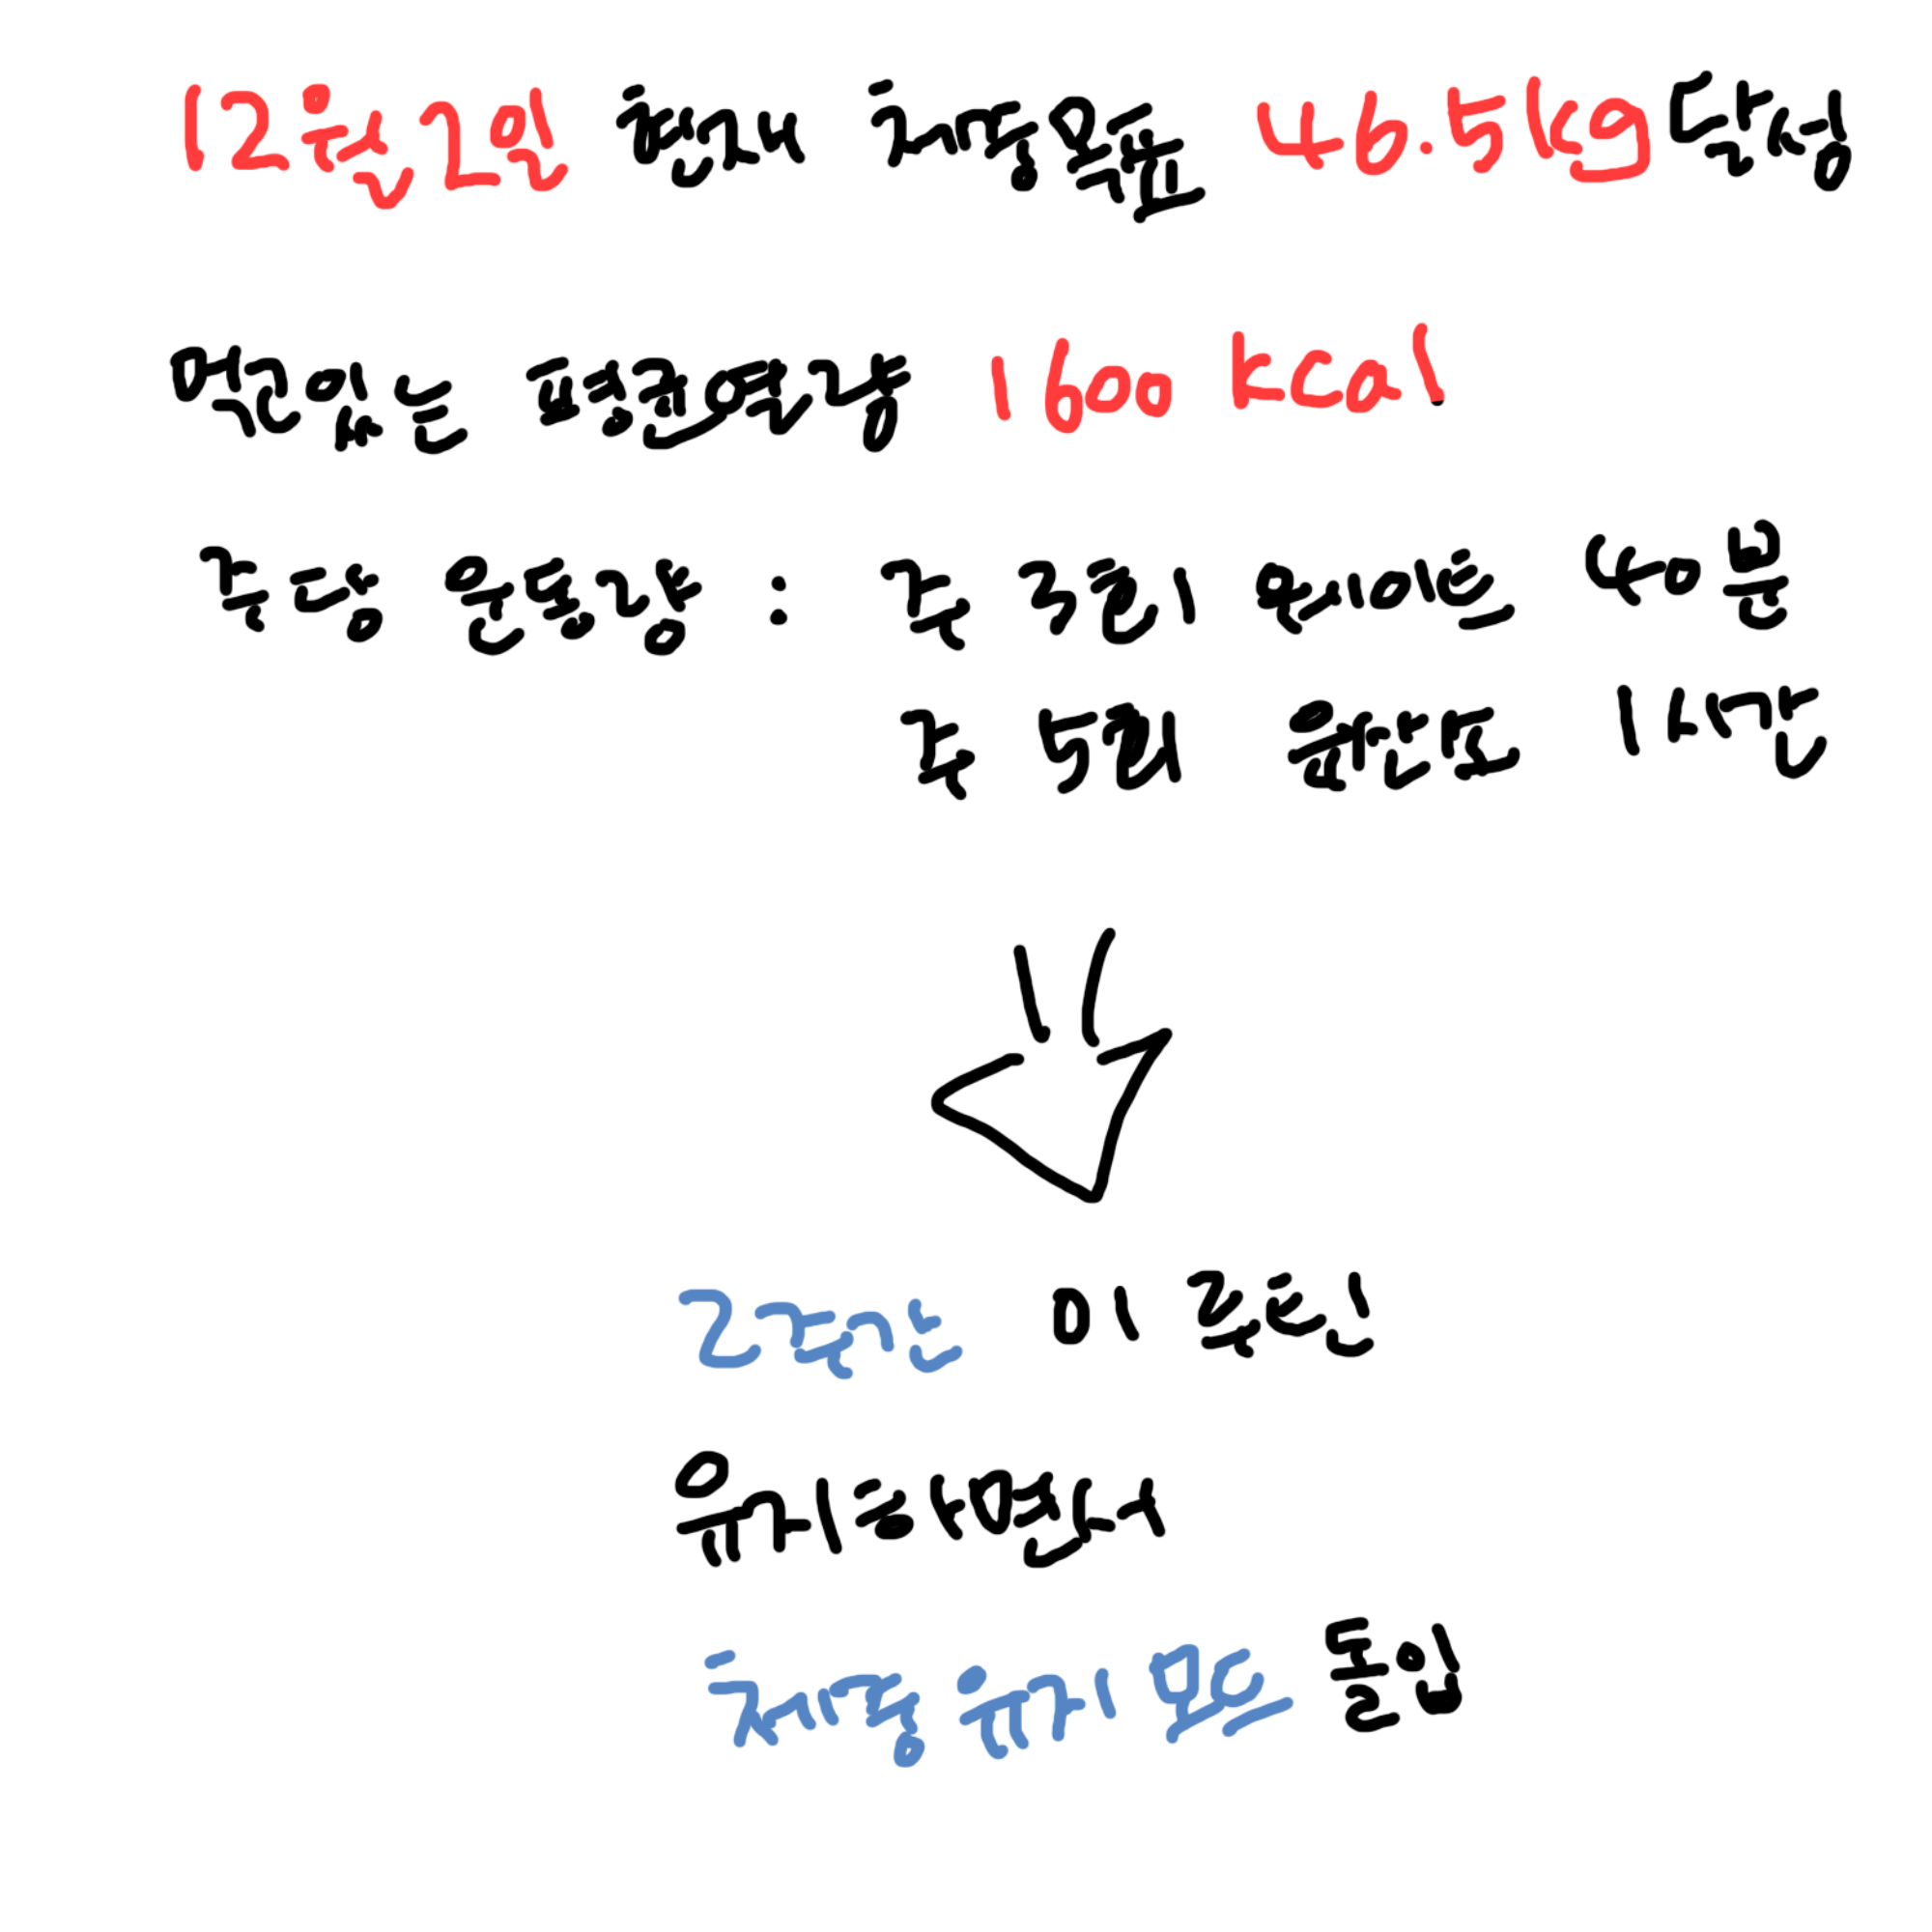 12월1일 현재 체중목표 46.5kg달성
먹고있는 평균열량 1600 kcal
주당 운동량 : 주 3회 웨이트 40분
주 5회 유산소 1시간
2주간 이 루틴
유지하면서
체중유지모드 돌입